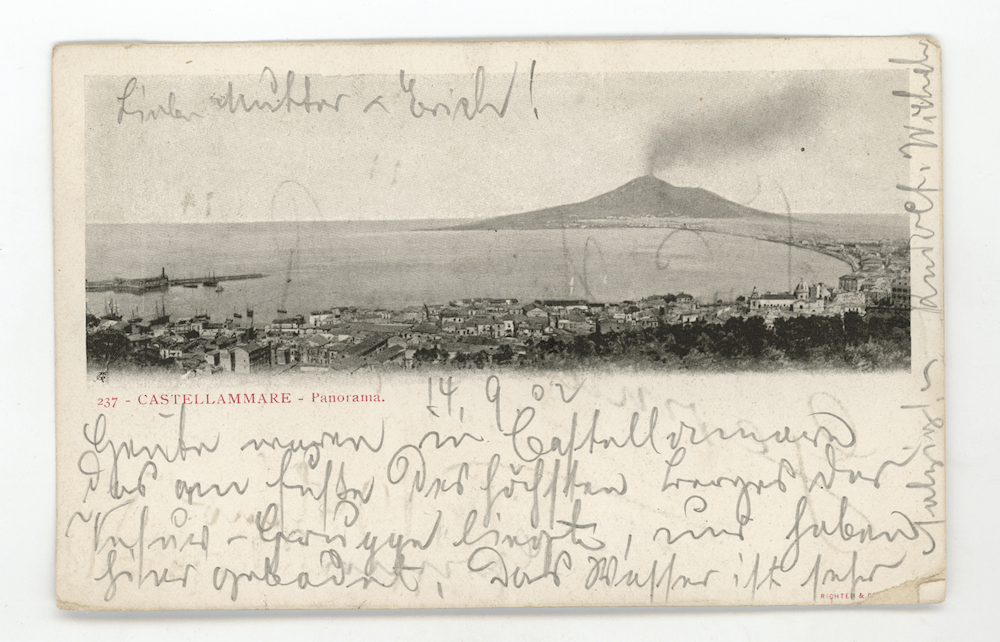 Liebe Mutter & Erich!
237 - CASTELLAMMARE - Panorama.
14. 9. 02
Heute waren wir in Castellamare
das am Fuße des höchsten Berges der
Vesuv-Gruppe liegt, und haben
hier gebadet. Das Wasser ist sehr
RICHTER &